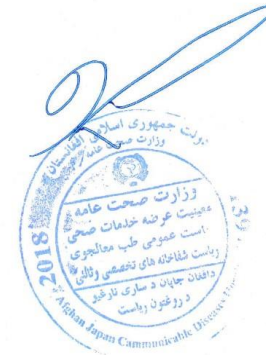 دولت جمهوری اسلامی افغانستان
وزارت صحت عامه
وزارت صحت عامه
معینیت عرضه خدمات صحی
ریاست عمومی طب معالجوی
ریاست شفاخانه های تخصصی
دافغان جاپان د ساری ناروغیو
د روغتون ریاست
2018
Afghan Japan Communicable